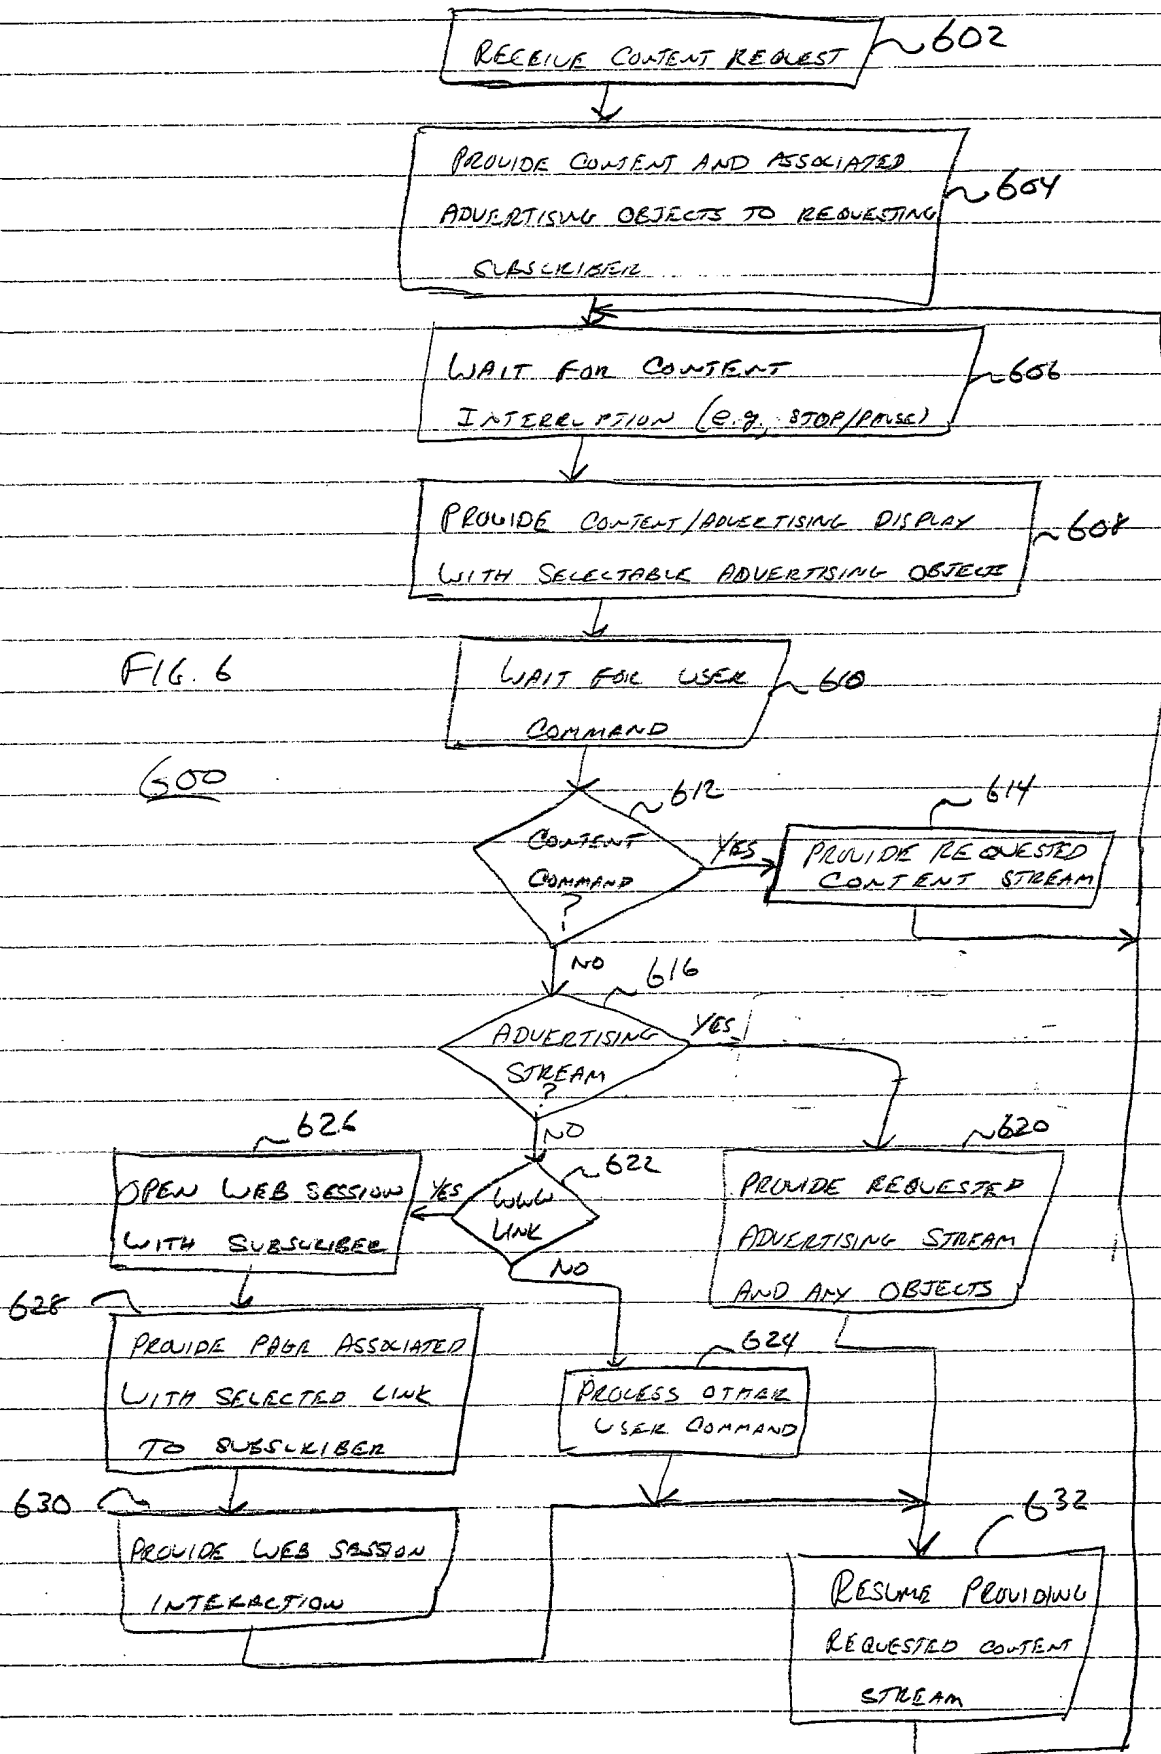 RECEIVE CONTENT REQUEST
602
PROVIDE CONTENT AND ASSOCIATED
ADVERTISING OBJECTS TO REQUESTING
SUBSCRIBER
604
WAIT FOR CONTENT
INTERRUPTION (e.g., STOP/PAUSE)
606
PROVIDE CONTENT/ADVERTISING DISPLAY
WITH SELECTABLE ADVERTISING OBJECTS
608
FIG. 6
WAIT FOR USER
COMMAND
610
600
CONTENT
COMMAND
?
612
YES
PROVIDE REQUESTED
CONTENT STREAM
614
NO
ADVERTISING
STREAM
?
616
YES
NO
626
OPEN WEB SESSION
WITH SUBSCRIBER
YES
WWW
LINK
622
NO
PROVIDE REQUESTED
ADVERTISING STREAM
AND ANY OBJECTS
620
628
PROVIDE PAGE ASSOCIATED
WITH SELECTED LINK
TO SUBSCRIBER
PROCESS OTHER
USER COMMAND
624
630
PROVIDE WEB SESSION
INTERACTION
632
RESUME PROVIDING
REQUESTED CONTENT
STREAM